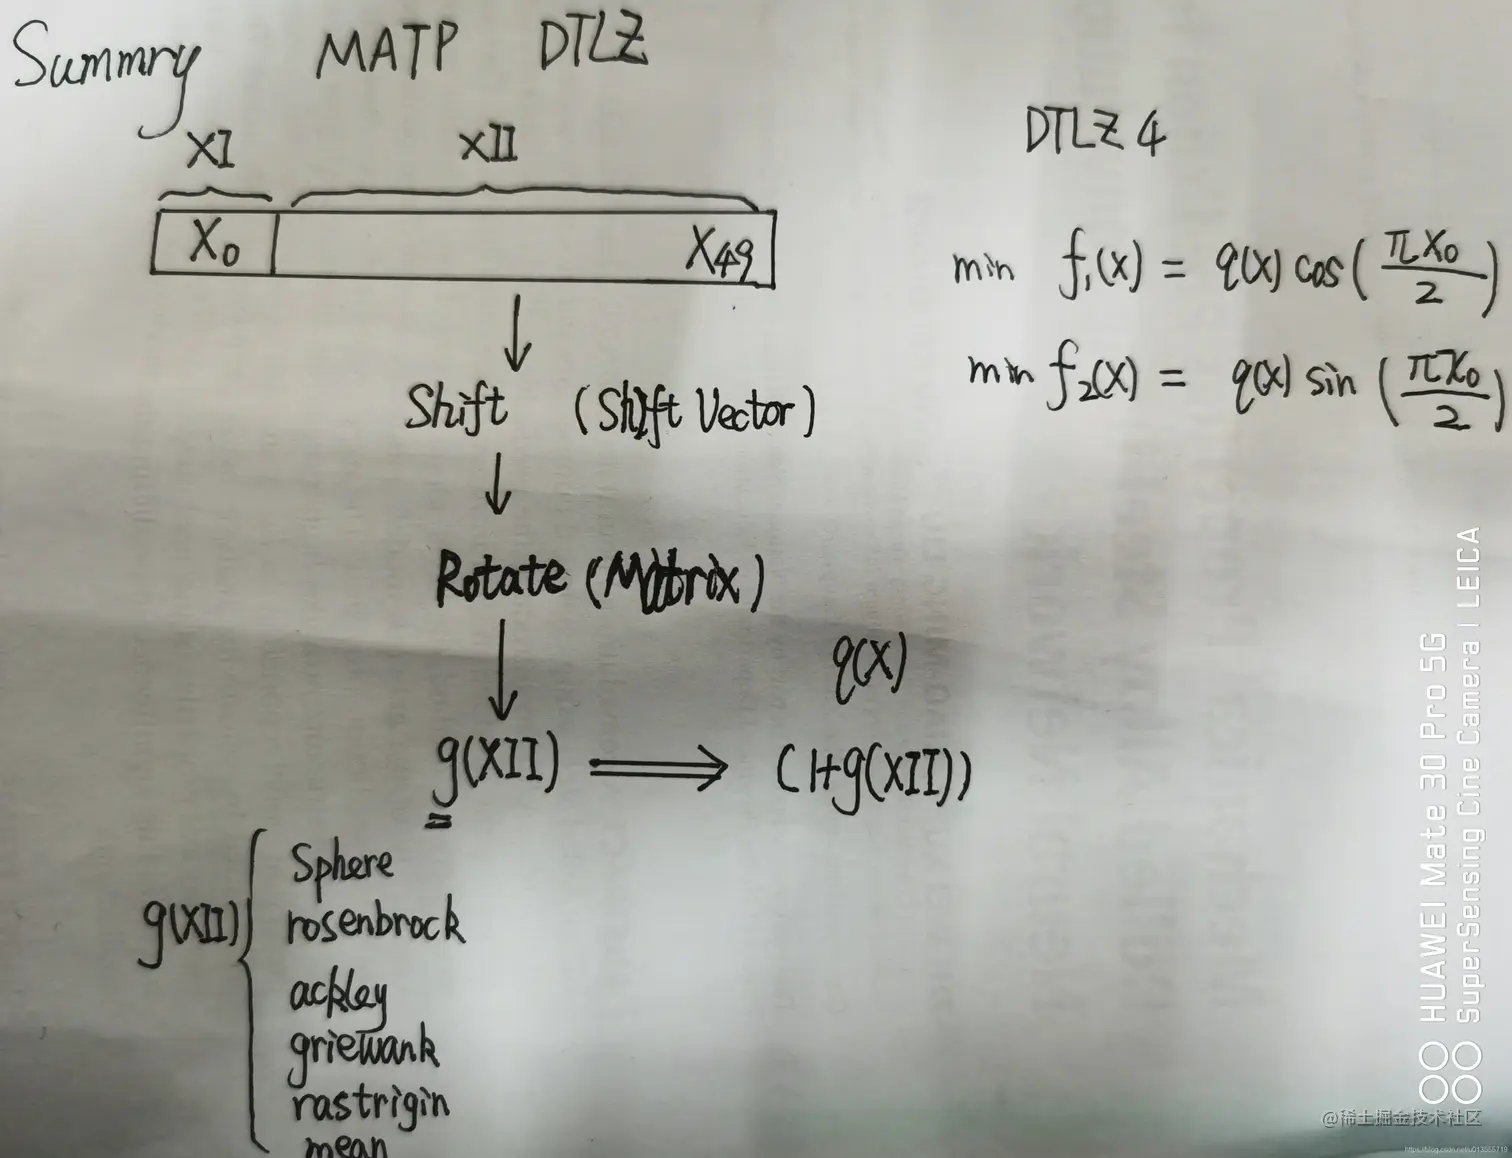 Summry MATP DTLZ
XI XII
X₀ X₄₉
Shift (Shift Vector)
Rotate (Matrix)
q(X)
g(XII) ⟹ (1+g(XII))
g(XII) {
Sphere
rosenbrock
ackley
griewank
rastrigin
mean
DTLZ4
min f₁(X) = q(X) cos(πX₀/2)
min f₂(X) = q(X) sin(πX₀/2)
HUAWEI Mate 30 Pro 5G
SuperSensing Cine Camera | LEICA
@稀土掘金技术社区